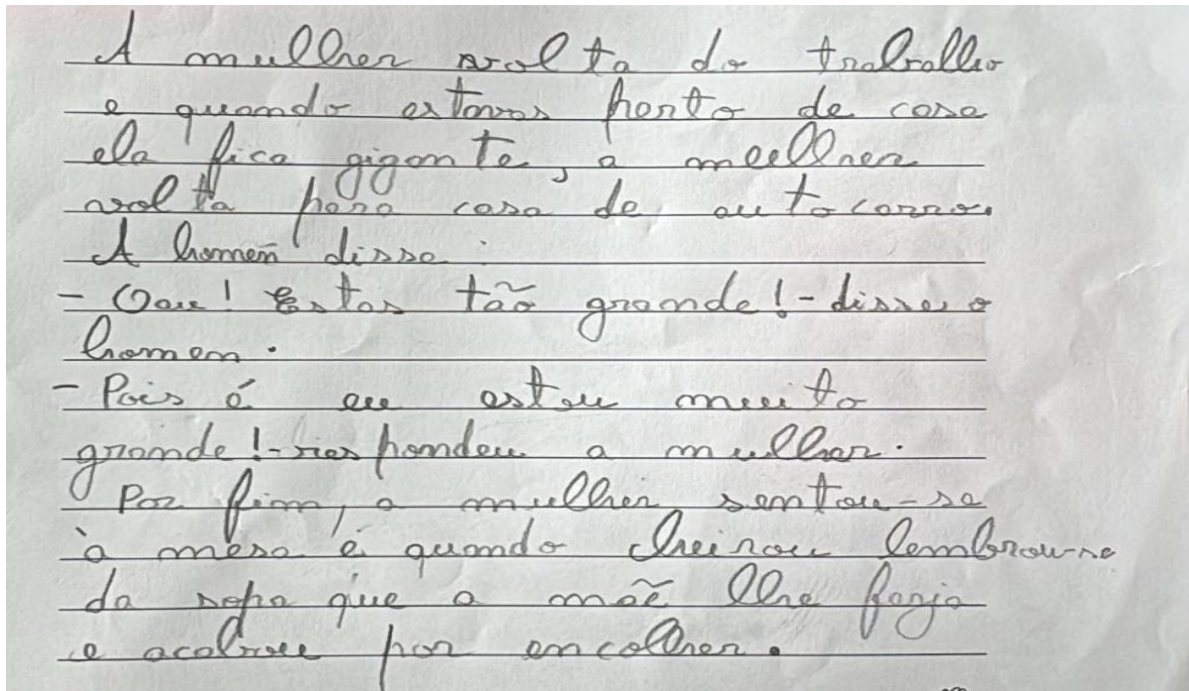 A mulher volta do trabalho
e quando estavas perto de casa
ela fica gigante, a mulher
volta para casa de autocarro.
A homem disse :
- Oau! Estas tão grande! - disse o
homem.
- Pois é eu estou muito
grande! - respondeu a mulher.
Por fim, a mulher sentou-se
à mesa e quando cheirou lembrou-se
da sopa que a mãe lhe fazia
e acabou por encolher.